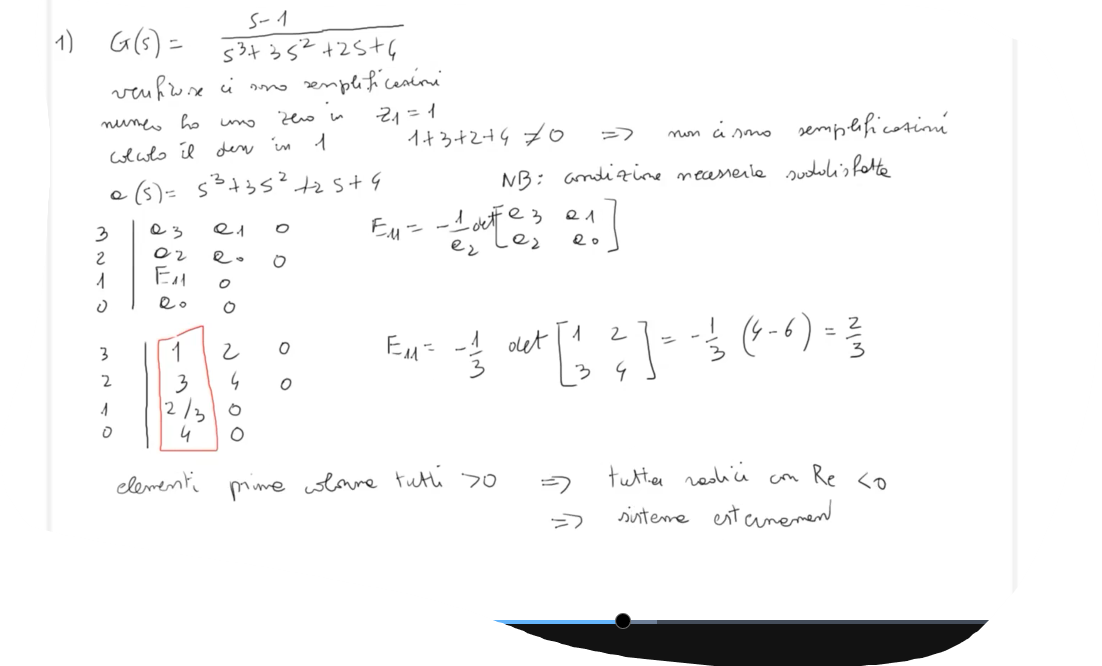 1) G(s) = s-1 / s³+3s²+2s+4
verificare ci sono semplificazioni
numer ho uno zero in z1 = 1
calcolo il den in 1 1+3+2+4 ≠0 => non ci sono semplificazioni
a(s)= s³+3s²+2s+4 NB: condizione necessaria soddisfatta
3 | a3 a1 0 E11 = -1/a2 det [a3 a1
2 | a2 a0 0 a2 a0]
1 | E11 0
0 | a0 0
3 | 1 2 0 E11 = -1/3 det [1 2
2 | 3 4 0 3 4] = -1/3 (4-6) = 2/3
1 | 2/3 0
0 | 4 0
elementi prima colonna tutti >0 => tutte radici con Re <0
=> sistema esternamen